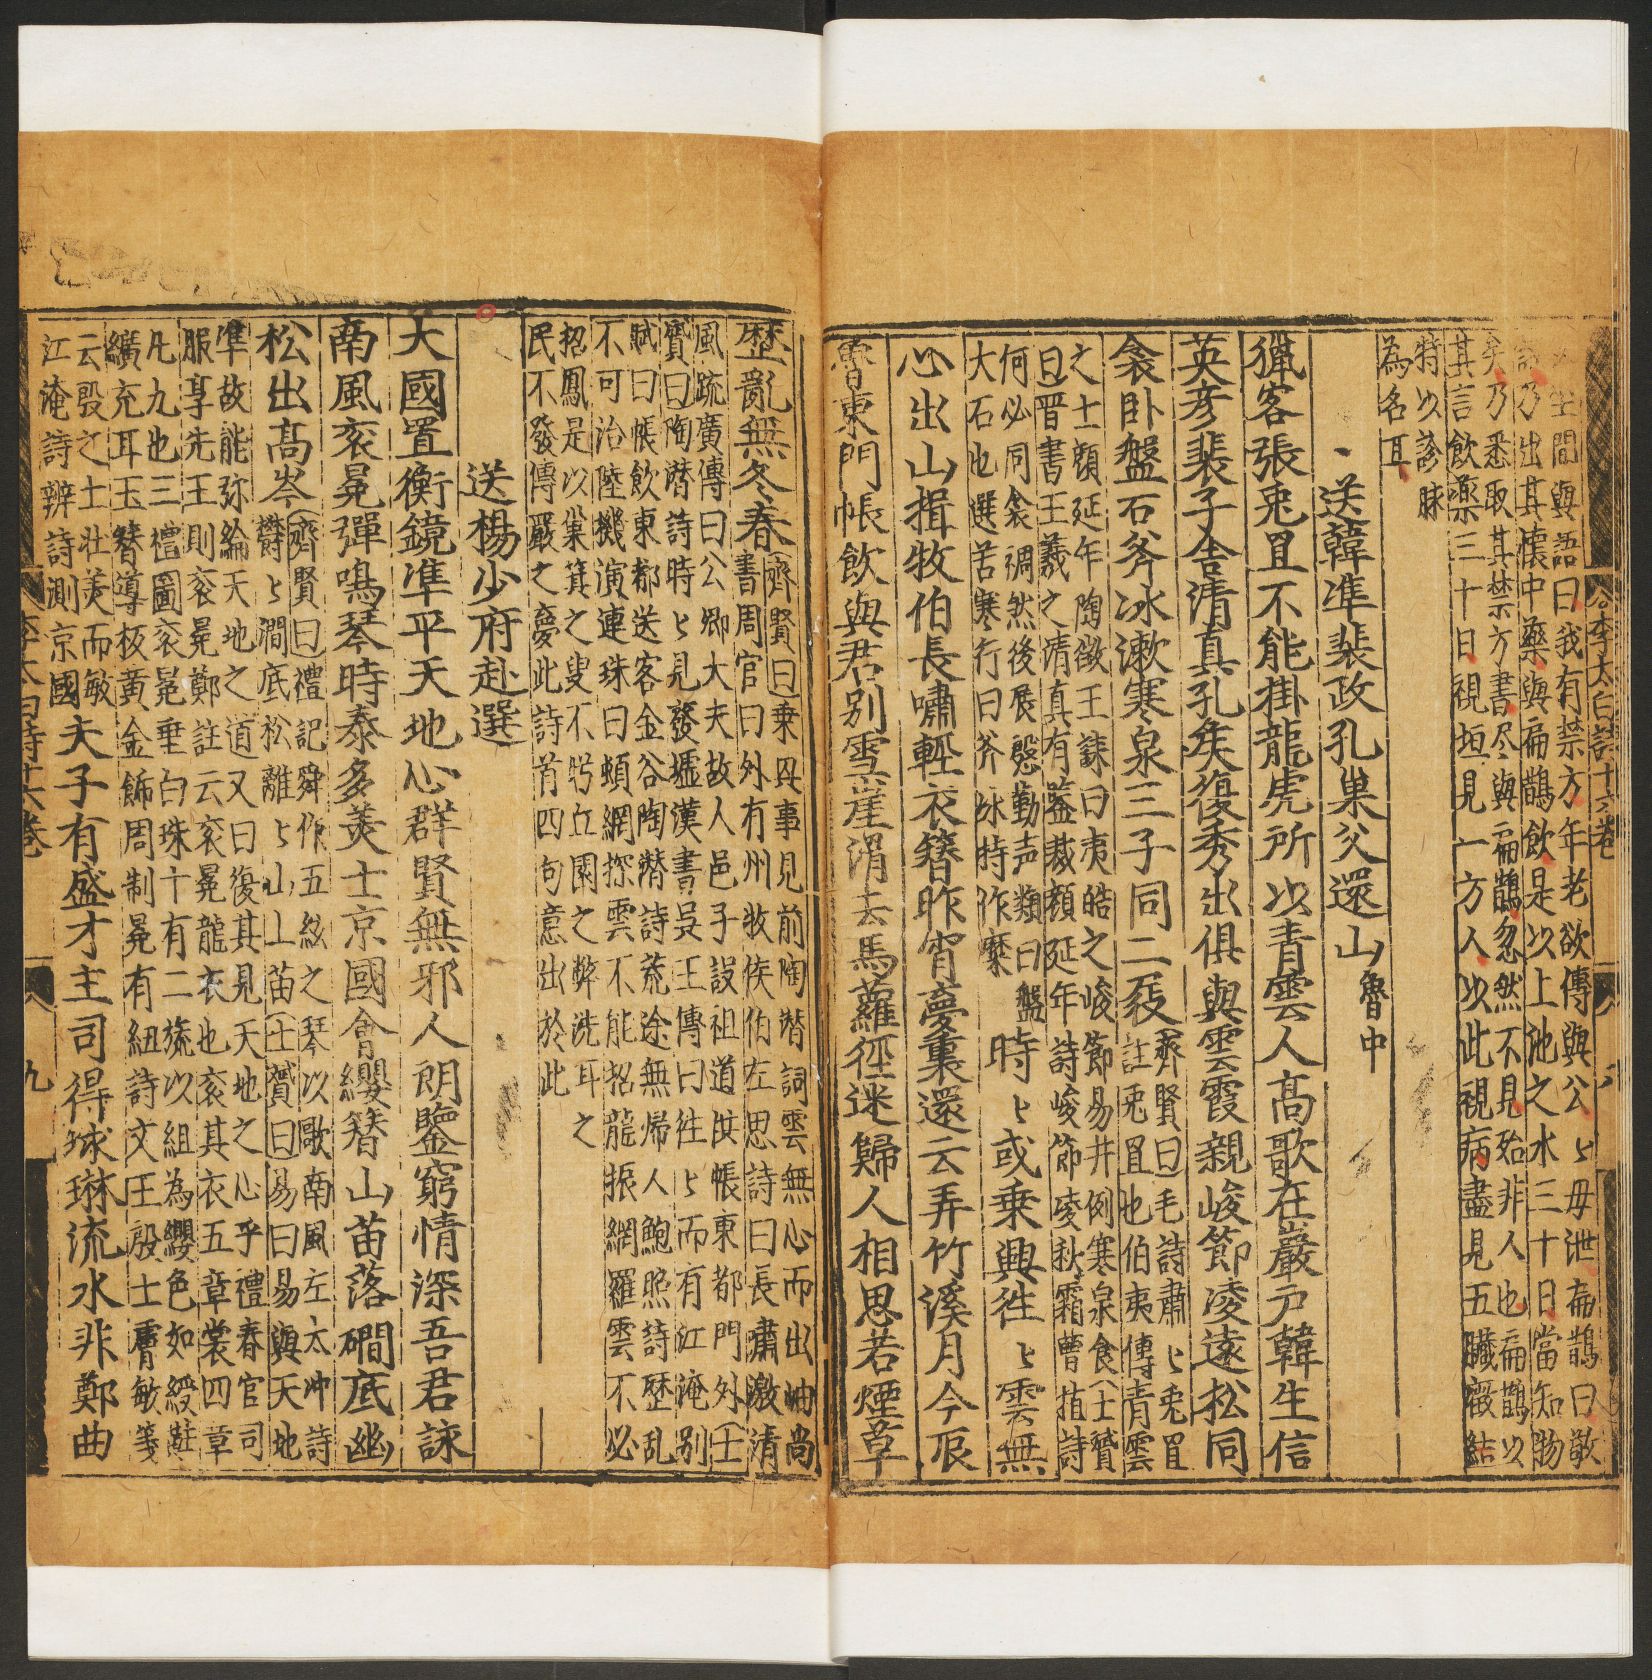 坐間與語曰我有禁方年老欲傳與公〻毋泄扁鵲曰敬
諾乃出其懷中藥與扁鵲飲是以上池之水三十日當知物
矣乃悉取其禁方書尽與扁鵲忽然不見殆非人也扁鵲以
其言飲藥三十日視垣見一方人以此視病盡見五臟癥結
特以診脉
為名耳
送韓準裴政孔巢父還山魯中
獵客張兎罝不能掛龍虎所以青雲人高歌在巖户韓生信
英彦裴子含清真孔矦復秀出俱與雲霞親峻節凌遠松同
衾卧盤石斧冰漱寒泉三子同二屐齊賢曰毛詩肅〻兎罝
註兎罝也伯夷傳青雲
之士顔延年陶徵王誄曰夷皓之峻節易井例寒泉食士贇
曰晋書王羲之清真有蓋裁顔延年詩峻節凌秋霜曹植詩
何必同衾裯然後展慇勤声類曰盤
大石也選苦寒行曰斧冰持作糜時〻或乗興徃〻雲無
心出山揖牧伯長嘯輕衣簪昨宵夢裏還云弄竹溪月今辰
魯東門帳飲與君别雪崖滑去馬蘿徑迷歸人相思若煙草
歷亂無冬春齊賢曰乗興事見前陶潜詞雲無心而出岫尚
書周官曰外有州牧侯伯左思詩曰長嘯激清
風疏廣傳曰公卿大夫故人邑子設祖道供帳東都門外士
贇曰陶潜詩時〻見發墟漢書吴王傳曰徃〻而有江淹别
賦曰帳飲東都送客金谷陶潜詩荒途無帰人鮑照詩歷乱
不可治陸機演連珠曰頓網探雲不能招龍振網羅雲不必
招鳳是以巢箕之叟不眄丘園之幣洗耳之
民不發傅巖之夢此詩首四句意出於此
送楊少府赴選
大國置衡鏡準平天地心群賢無邪人朗鑒窮情深吾君詠
南風衮冕彈鳴琴時泰多羙士京國會纓簪山苗落磵底幽
松出高岑齊賢曰禮記舜作五絃之琴以歌南風左太冲詩
欝〻澗底松離〻山上苗士贇曰易曰易與天地
準故能弥綸天地之道又曰復其見天地之心乎禮春官司
服享先王則衮冕鄭註云衮冕龍衣也衮其衣五章裳四章
凡九也三禮圖衮冕垂白珠十有二旒以組為纓色如綬黈
纊充耳玉簪導板黄金飾周制冕有紐詩文王殷士膚敏箋
云殷之士壮羙而敏
江淹詩辨詩測京國夫子有盛才主司得球琳流水非鄭曲
李太白詩十六卷
九